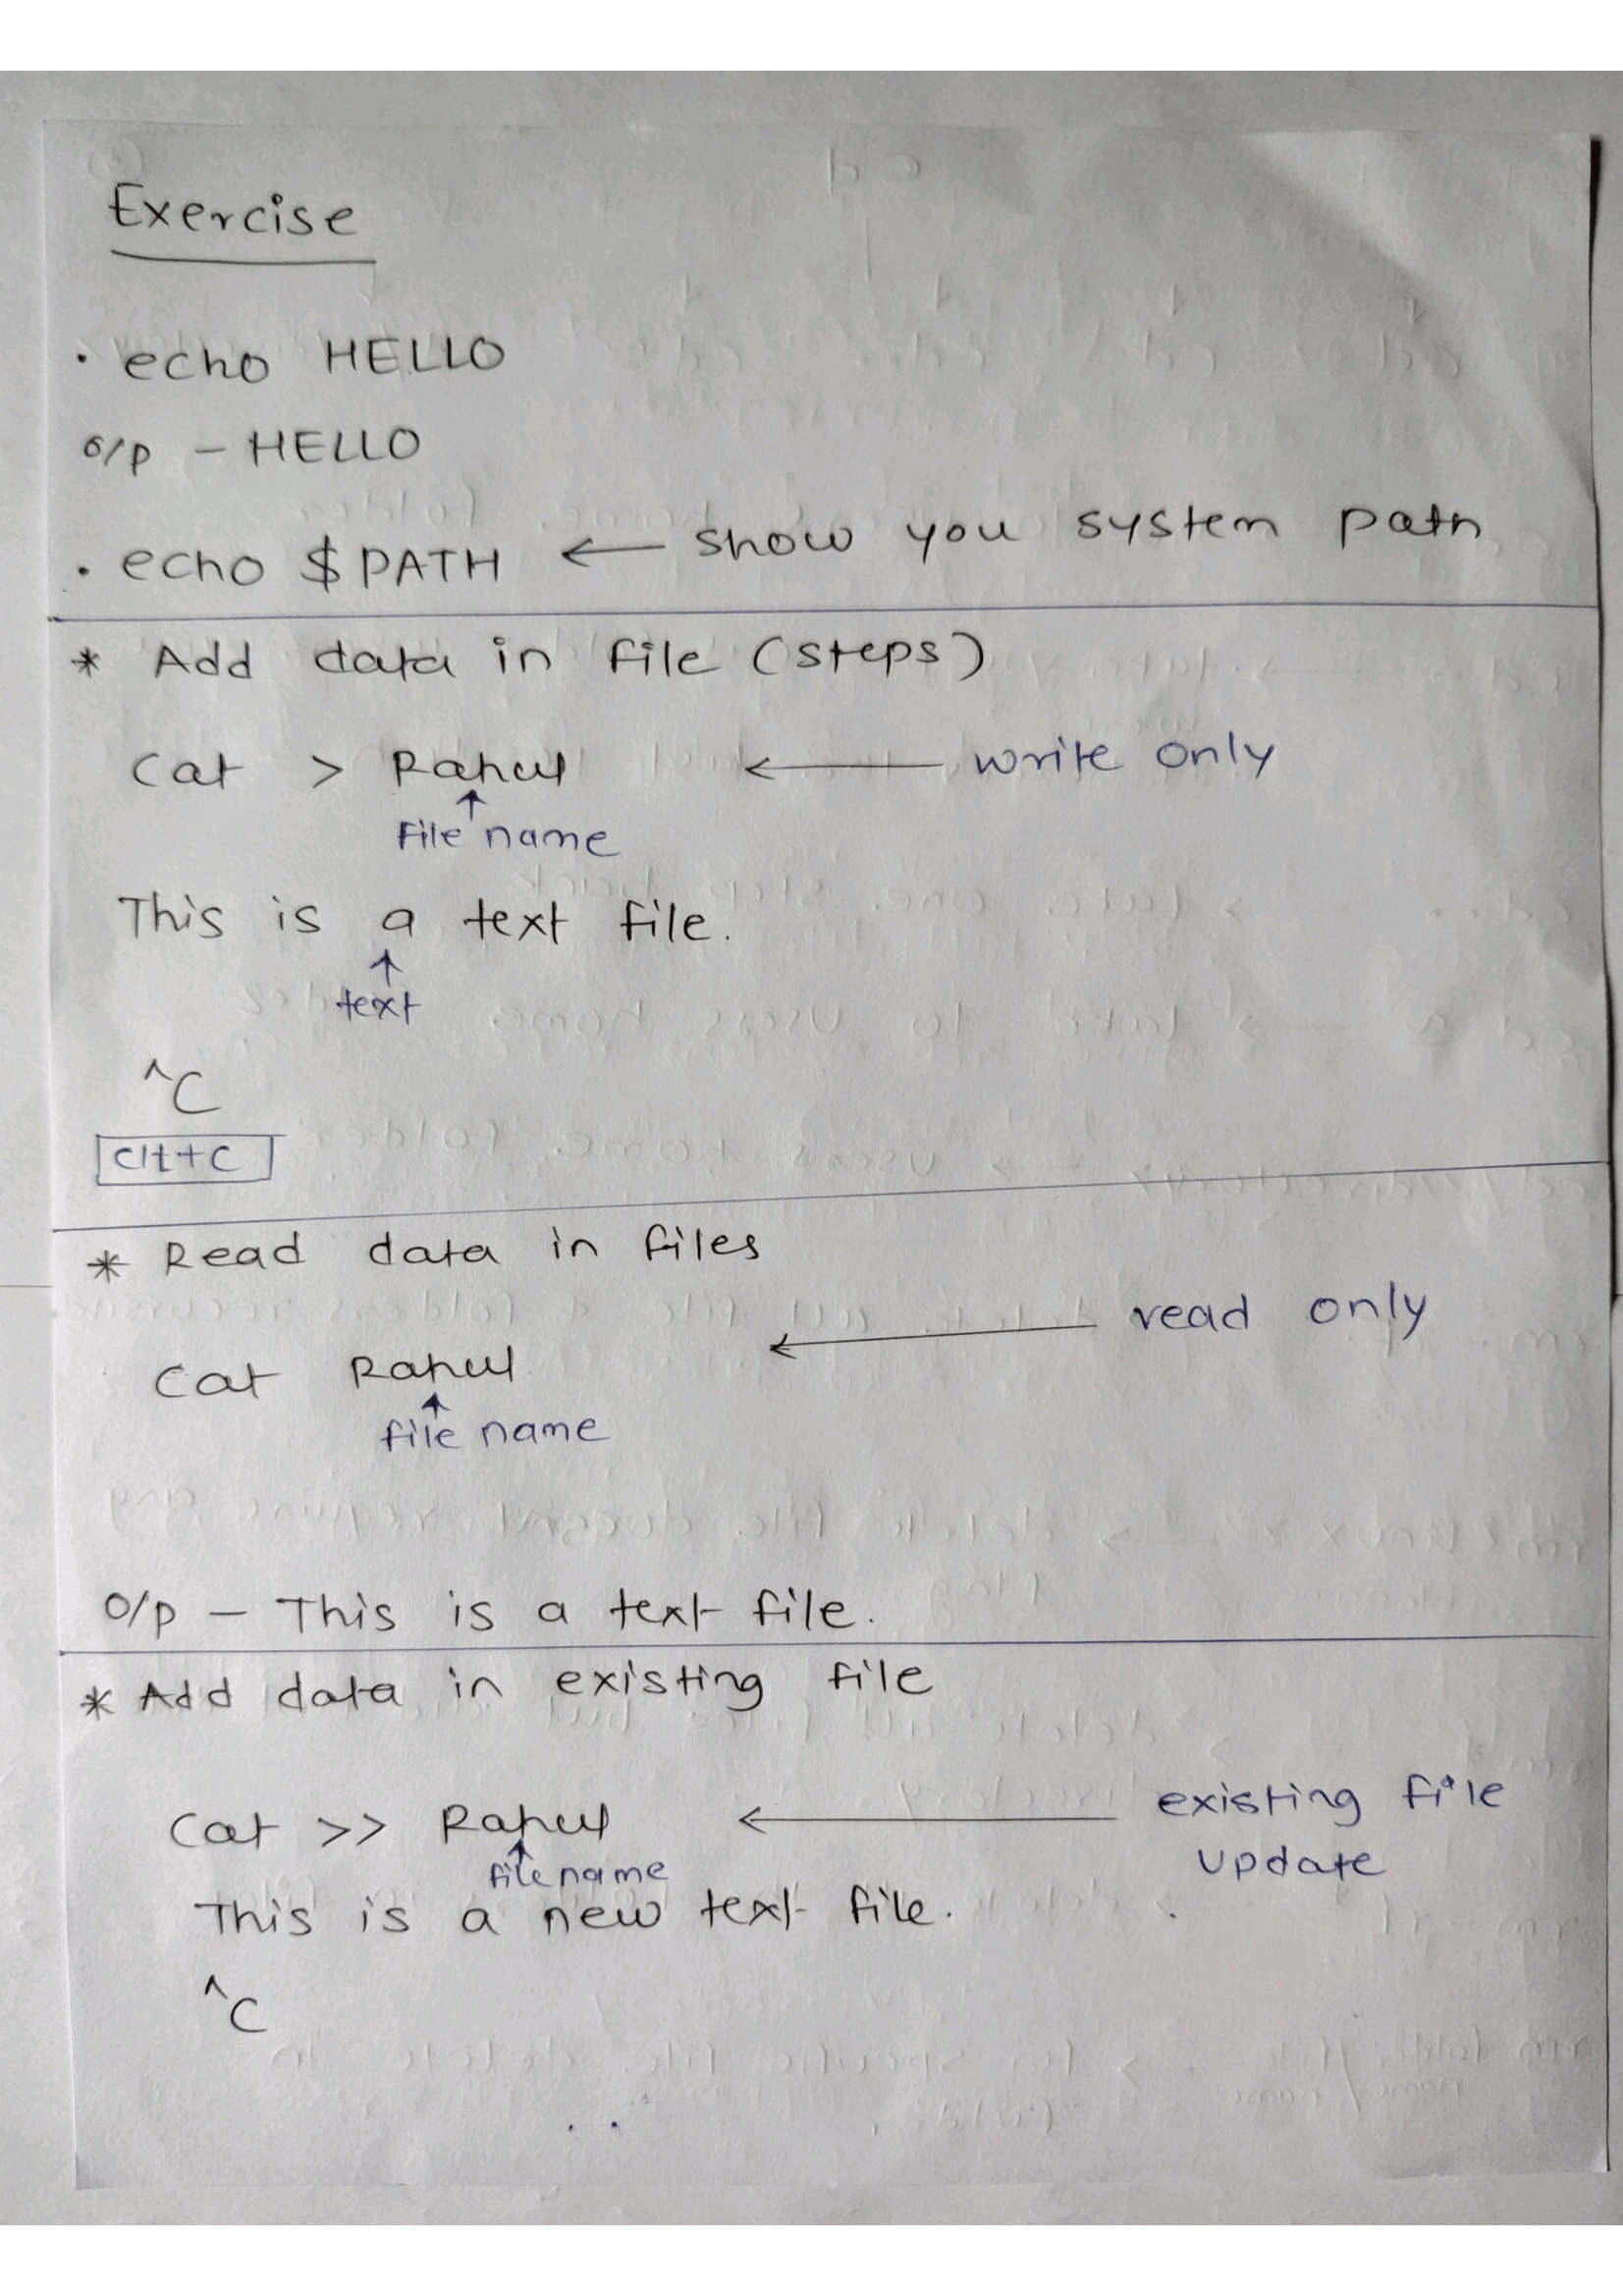 Exercise
• echo HELLO
o/p - HELLO
• echo $PATH ← show you system path
* Add data in file (steps)
Cat > Rahul ← write only
↑
File name
This is a text file.
↑
text
^C
clt+C
* Read data in files
← read only
Cat Rahul
↑
file name
o/p - This is a text file.
* Add data in existing file
Cat >> Rahul ← existing file
↑
file name
update
This is a new text file.
^C